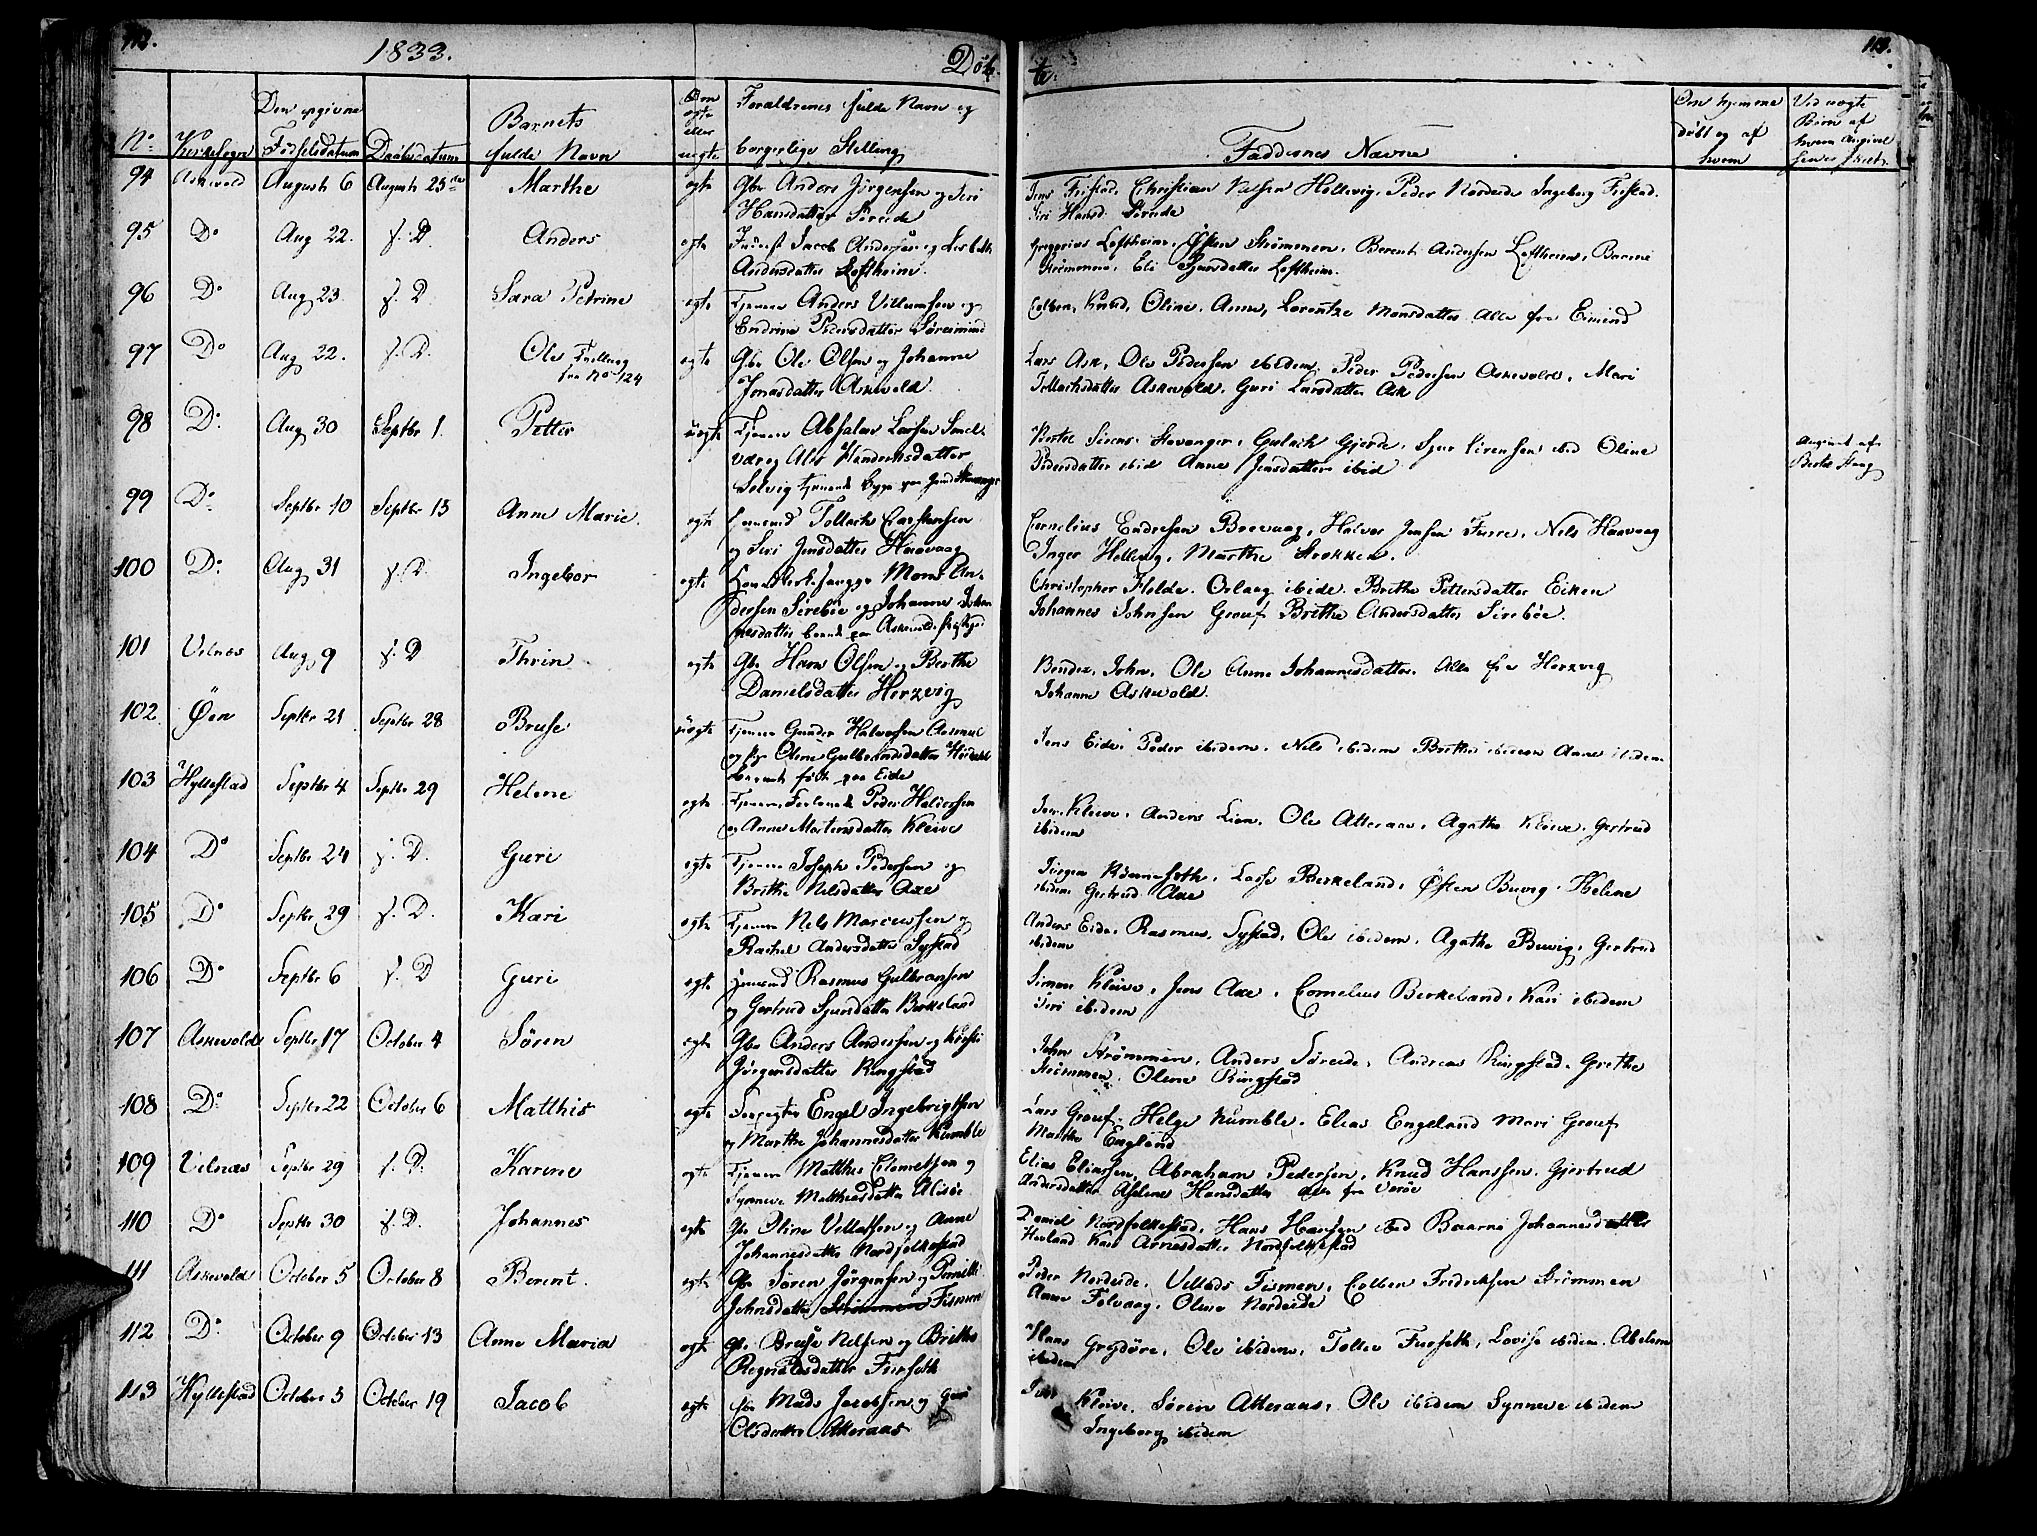 112.
1833.
Døb
te.
113.
No
Kirkesogn
Den opgivne
Fødselsdatum
Daabsdatum
Barnets
fulde Navn
Om
egte
eller
uegte
Forældrenes fulde Navn og
borgerlige Stilling
Faddernes Navne
Om hjemme
døbt og af
hvem
Ved uegte
Børn af
hvem Angivel
sen er skeet
94 Askevold August 6 August 25de Marthe egte Gbr Anders Jörgensen og Siri
Hansdatter Söreide
Jens Fristad, Christian Nilsen Hellevig, Peder Nordeide Ingeborg Fristad.
Siri Hansd. Söreide
95 Do Aug 22. s. D. Anders egte Inderst Jacob Andersen og Lisbeth
Andersdatter Loftheim.
Gregorius Loftheim, Østen Strömmen, Berent Andersen Loftheim, Barmi
Strömmen, Eli Sjursdatter Loftheim.
96 Do Aug 23. s. D. Sara Petrine egte Tjenere Anders Villumsen og
Endrine Pedersdatter
Colben, Knud, Oline, Anne, Lorentze Monsdatter Alle fra Eimind
97 Do Aug 22. s. D. Ole Tvilling
fra No 124
egte Gbr Ole Olsen og Johanne
Jonasdatter Askevold.
Lars Ask, Ole Pedersen ibidem, Peder Pedersen Askevold, Mari
Tollachsdatter Askevold, Guri Larsdatter Ask
98 Do. Aug 30 Septbr 1. Petter uegte Tjenere Absalon Larsen Smel-
vær og Alis Hendriksdatter
Solvig
Berthe Sirens Stavanger, Gulach Gjerde, Sjur Sirensen ibid Oline
Pedersdatter ibid Anne Jensdatter ibid
Angivet af
99 Do. Septbr 10 Septbr 15 Anne Marie. egte Huusmand Tollach Carstensen
og Siri Jensdatter Haavaag
Cornelius Endresen Brevaag, Halvor Jensen Furre, Nels Haavaag
Inger Hellevig, Marthe Stokken.
100 Do. Aug 31 s. D. Ingebor egte Mons An-
dersen Sirebøe og Johanne Johan
nesdatter
Christopher Helde. Orlaug ibide. Brithe Pettersdatter Eiken
Johannes Johnsen Grouf Brithe Andersdatter Sirebøe.
101 Vilnæs Aug 9 s. D Thrin egte Gbr Hans Olsen og Berthe
Danielsdatter Herzvig
Bendix, John, Ole Anne Johannesdatter. Alle fra Herzvig
Johanne Askevold.
102. Øen Septbr 21 Septbr 28 Bruse uegte Tjenere Gunder Halvorsen
og Oline Gulbrandsdatter
født paa Eide
Jens Eide, Peder ibidem, Nels ibidem Brithe ibidem Anne ibidem
103 Hyllestad Septbr 4 Septbr 29 Helene egte Tjenere Peder Halvorsen
og Anne Mortensdatter Kleive
Jon Kleive, Anders Lien, Ole Atteraas, Agathe Kleive, Gertrud
ibidem
104 Do Septbr 24 s. D. Guri egte Tjenere Joseph Pedersen og
Brithe Nilsdatter Axe
Jörgen Rönneseth, Lasse Berkeland, Østen Buvig, Helene
ibidem Gertrud Axe
105 Do Septbr 29 s. D. Kari egte Tjenere Nels Marcussen og
Rachel Andersdatter Systad
Anders Eide, Rasmus Systad, Ole ibidem, Agathe Buvig, Gertrud
ibidem
106 Do Septbr 6 s. D Guri egte Huusmand Rasmus Gulbransen
og Gertrud Sjursdatter Birkeland
Simon Kleive, Jens Axe, Cornelius Berkeland, Kari ibidem
Siri ibidem
107 Askevold Septbr 17 October 4 Sören egte Gbr Anders Andersen og Kirsti
Jörgensdatter Ringstad
John Strömmen, Anders Söreide, Andreas Ringstad, Grethe
Strömmen, Oline Ringstad
108 Do. Septbr 22 October 6 Matthis egte Engel Ingebrigtsen
og Marthe Johannesdatter Kumble
Lars Grouf, Helge Kumble. Elias Engeland Mari Grouf
Marthe England
109 Vilnæs Septbr 29 s. D. Karine egte Tjenere Matthis Clemetsen og
Synneve Matthiasdatter
Elias Eliassen, Abraham Pedersen, Knud Hanssen. Gjertrud
Andersdatter Aselene Hansdatter alle fra Værøe
110 Do Septbr 30 s. D. Johannes egte Gbr Oline Villatsen og Anne
Johannesdatter Nordfolkestad
Daniel Nordfolkestad, Hans Hansen ibid Baarne Johannesdatter
Herland Kari Arnesdatter Nordfolkestad
111 Askevold October 5 October 8 Berent. egte Gbr Sören Jörgensen og Pernille
Johnsdatter Strömmen Tismen
Peder Nordeide, Vellads Tismen, Colben Fredriksen Strömmen
Anne Folvaag, Oline Nordeide
112 Do. October 9 October 13 Anne Maria egte Gbr Bruse Nelsen og Brithe
Regnaldsdatter Furseth
Hans Grydöre, Ole ibidem, Tollev Furseth, Lovise ibidem. Abelone
ibidem
113 Hyllestad October 3 October 19 Jacob egte Gbr Mads Jacobsen og Guri
Olsdatter Atteraas
Kleive, Sören Atteraas, Ole ibidem Synneve ibidem
Ingeborg ibidem